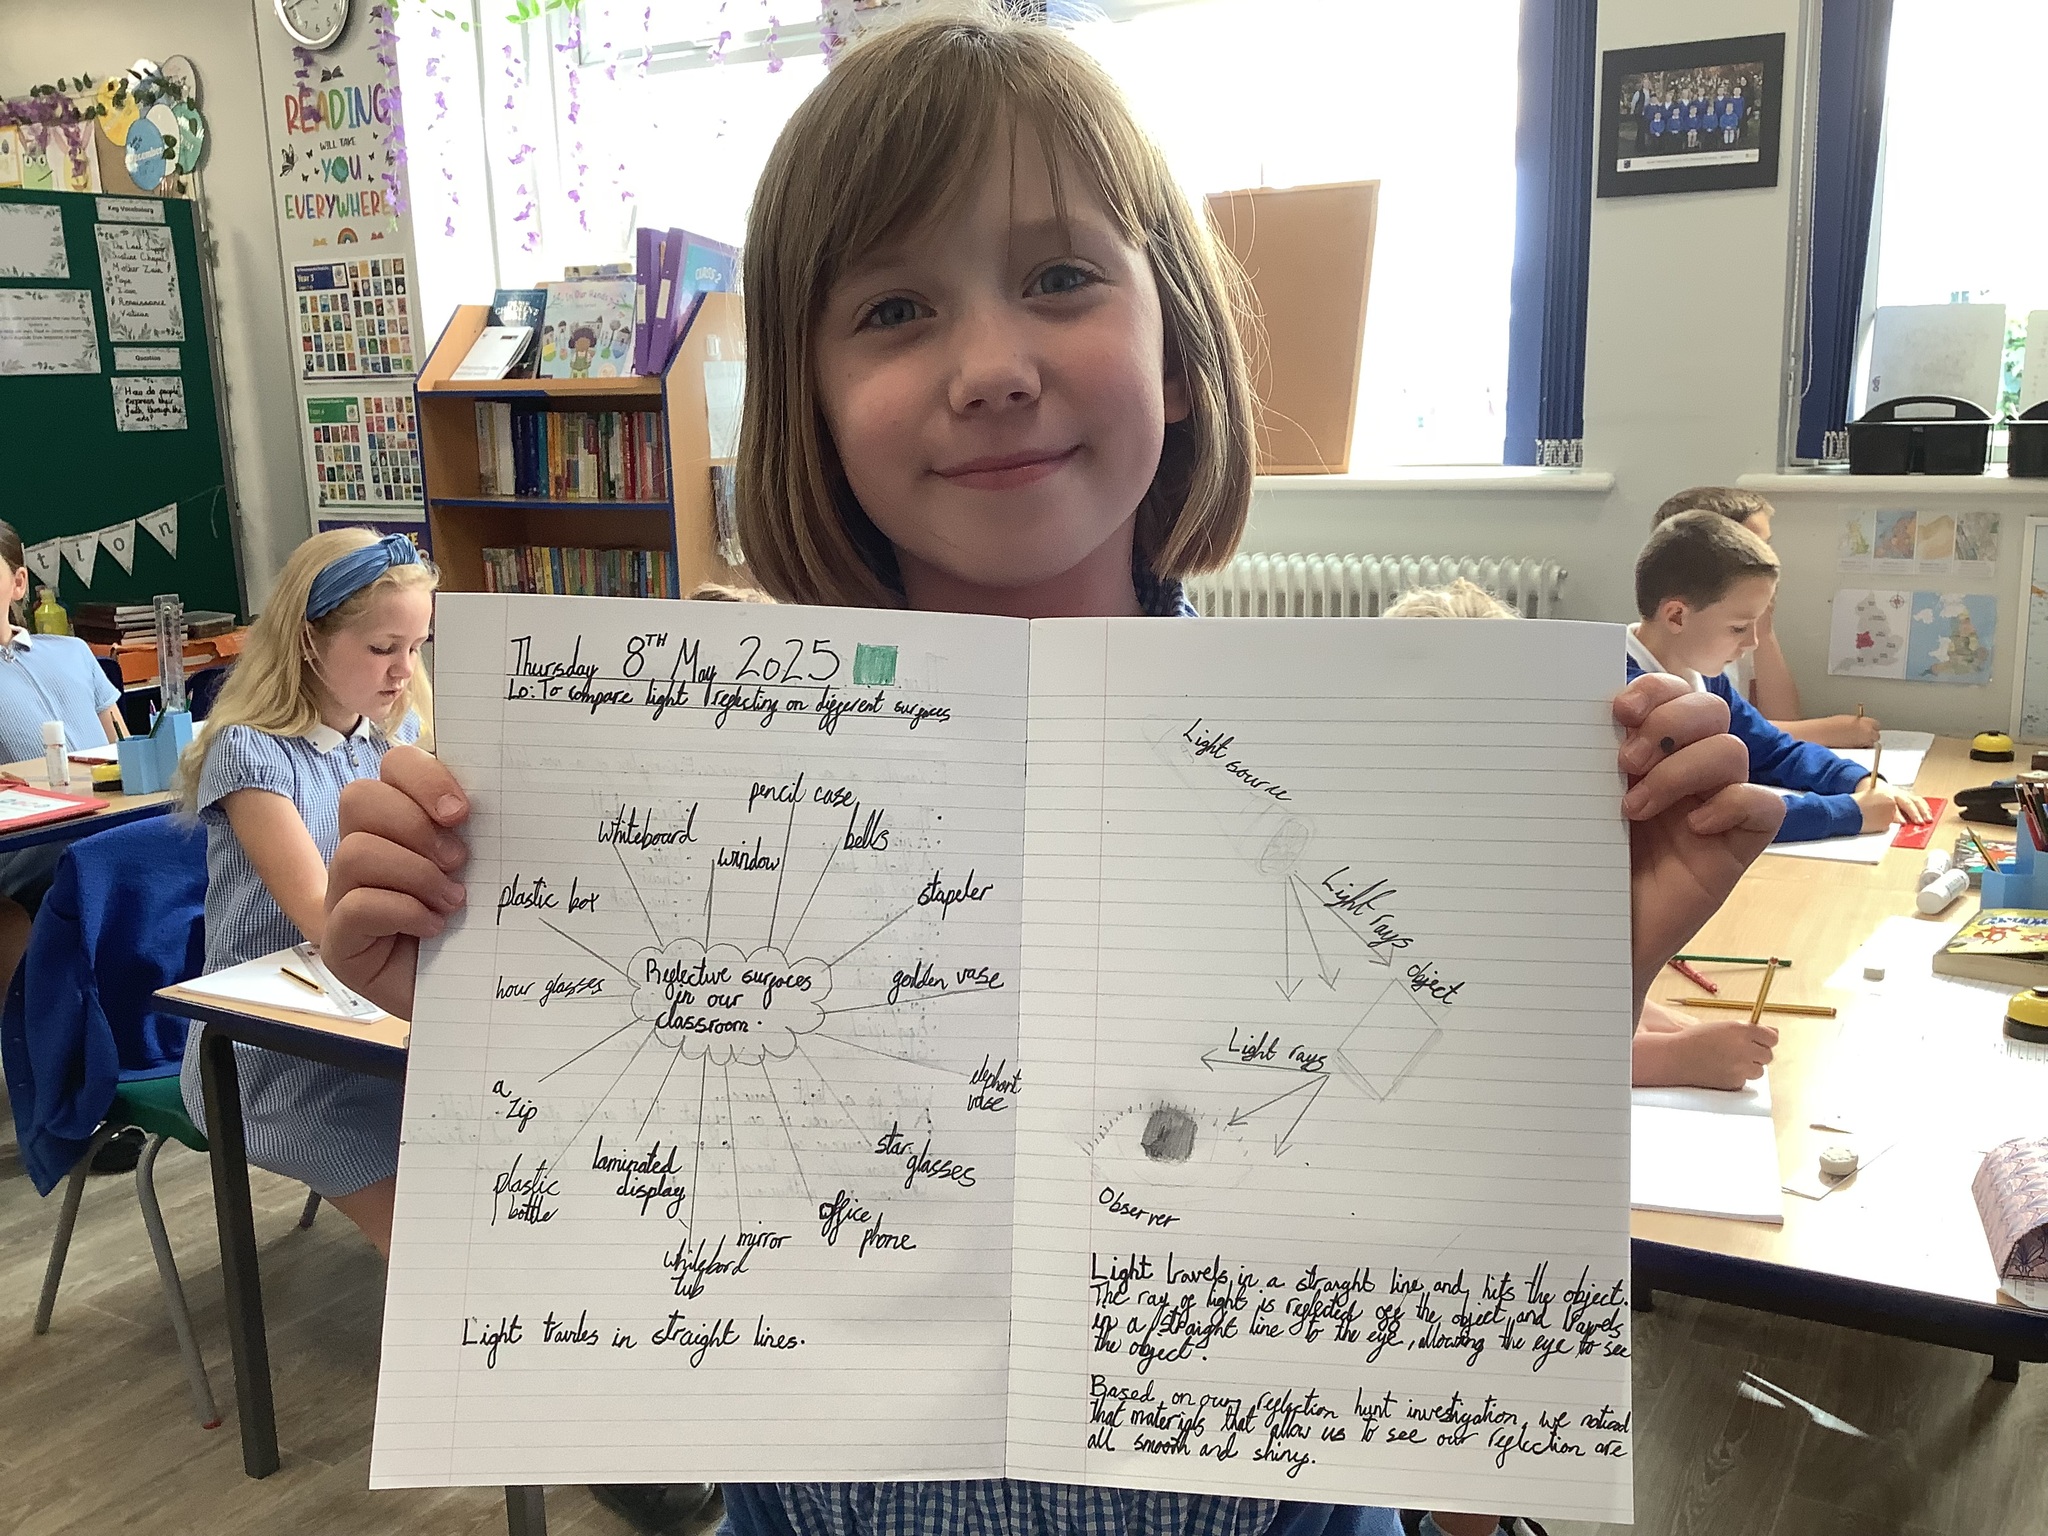 READING
WILL TAKE
YOU
EVERYWHERE
Key Vocabulary
The Last
Mother
Pope
Renaissance
Vatican
Question
How do people
express their
faith through the
arts?
Year 3
In Our Hands
CLASS 2
tion
Thursday 8TH May 2025
Lo: To compare light reflecting on different surfaces
pencil case
whiteboard
window
bells
plastic box
stapeler
Reflective surfaces
in our
classroom.
hour glasses
golden vase
a
zip
elephant
vase
star
glasses
laminated
display
plastic
bottle
office
phone
mirror
whitebord
tub
Light travles in straight lines.
Light
source
Light rays
object
Light rays
Observer
Light travels in a straight line and hits the object.
The ray of light is reflected off the object and travels
in a straight line to the eye, allowing the eye to see
the object.
Based on our reflection hunt investigation, we noticed
that materials that allow us to see our reflection are
all smooth and shiny.